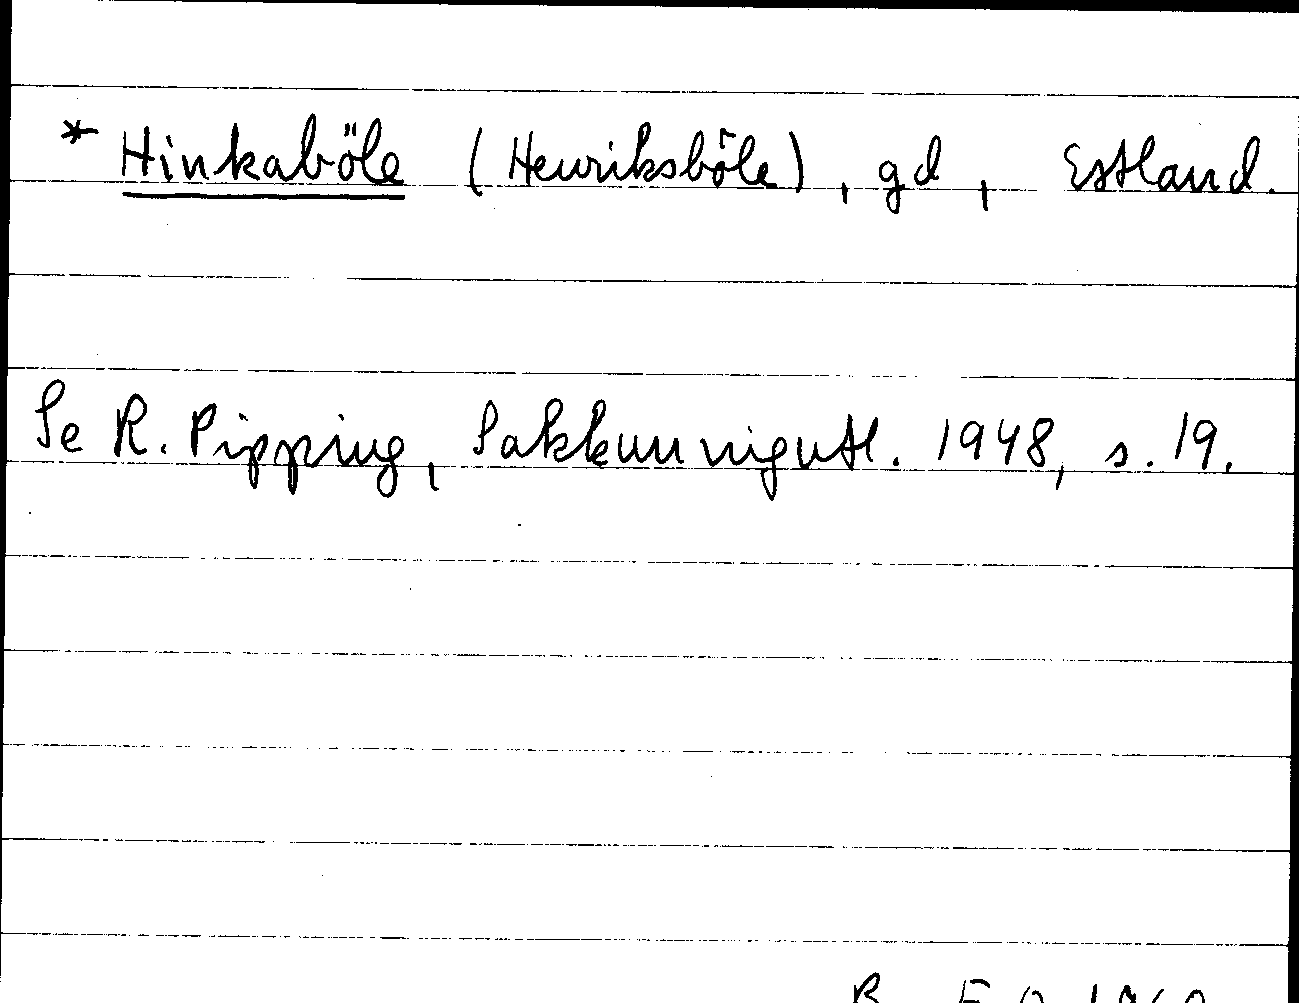 * Hinkaböle (Henriksböle), gd, Estland.
Se R. Pipping, Sakkunnigutl. 1948, s. 19.